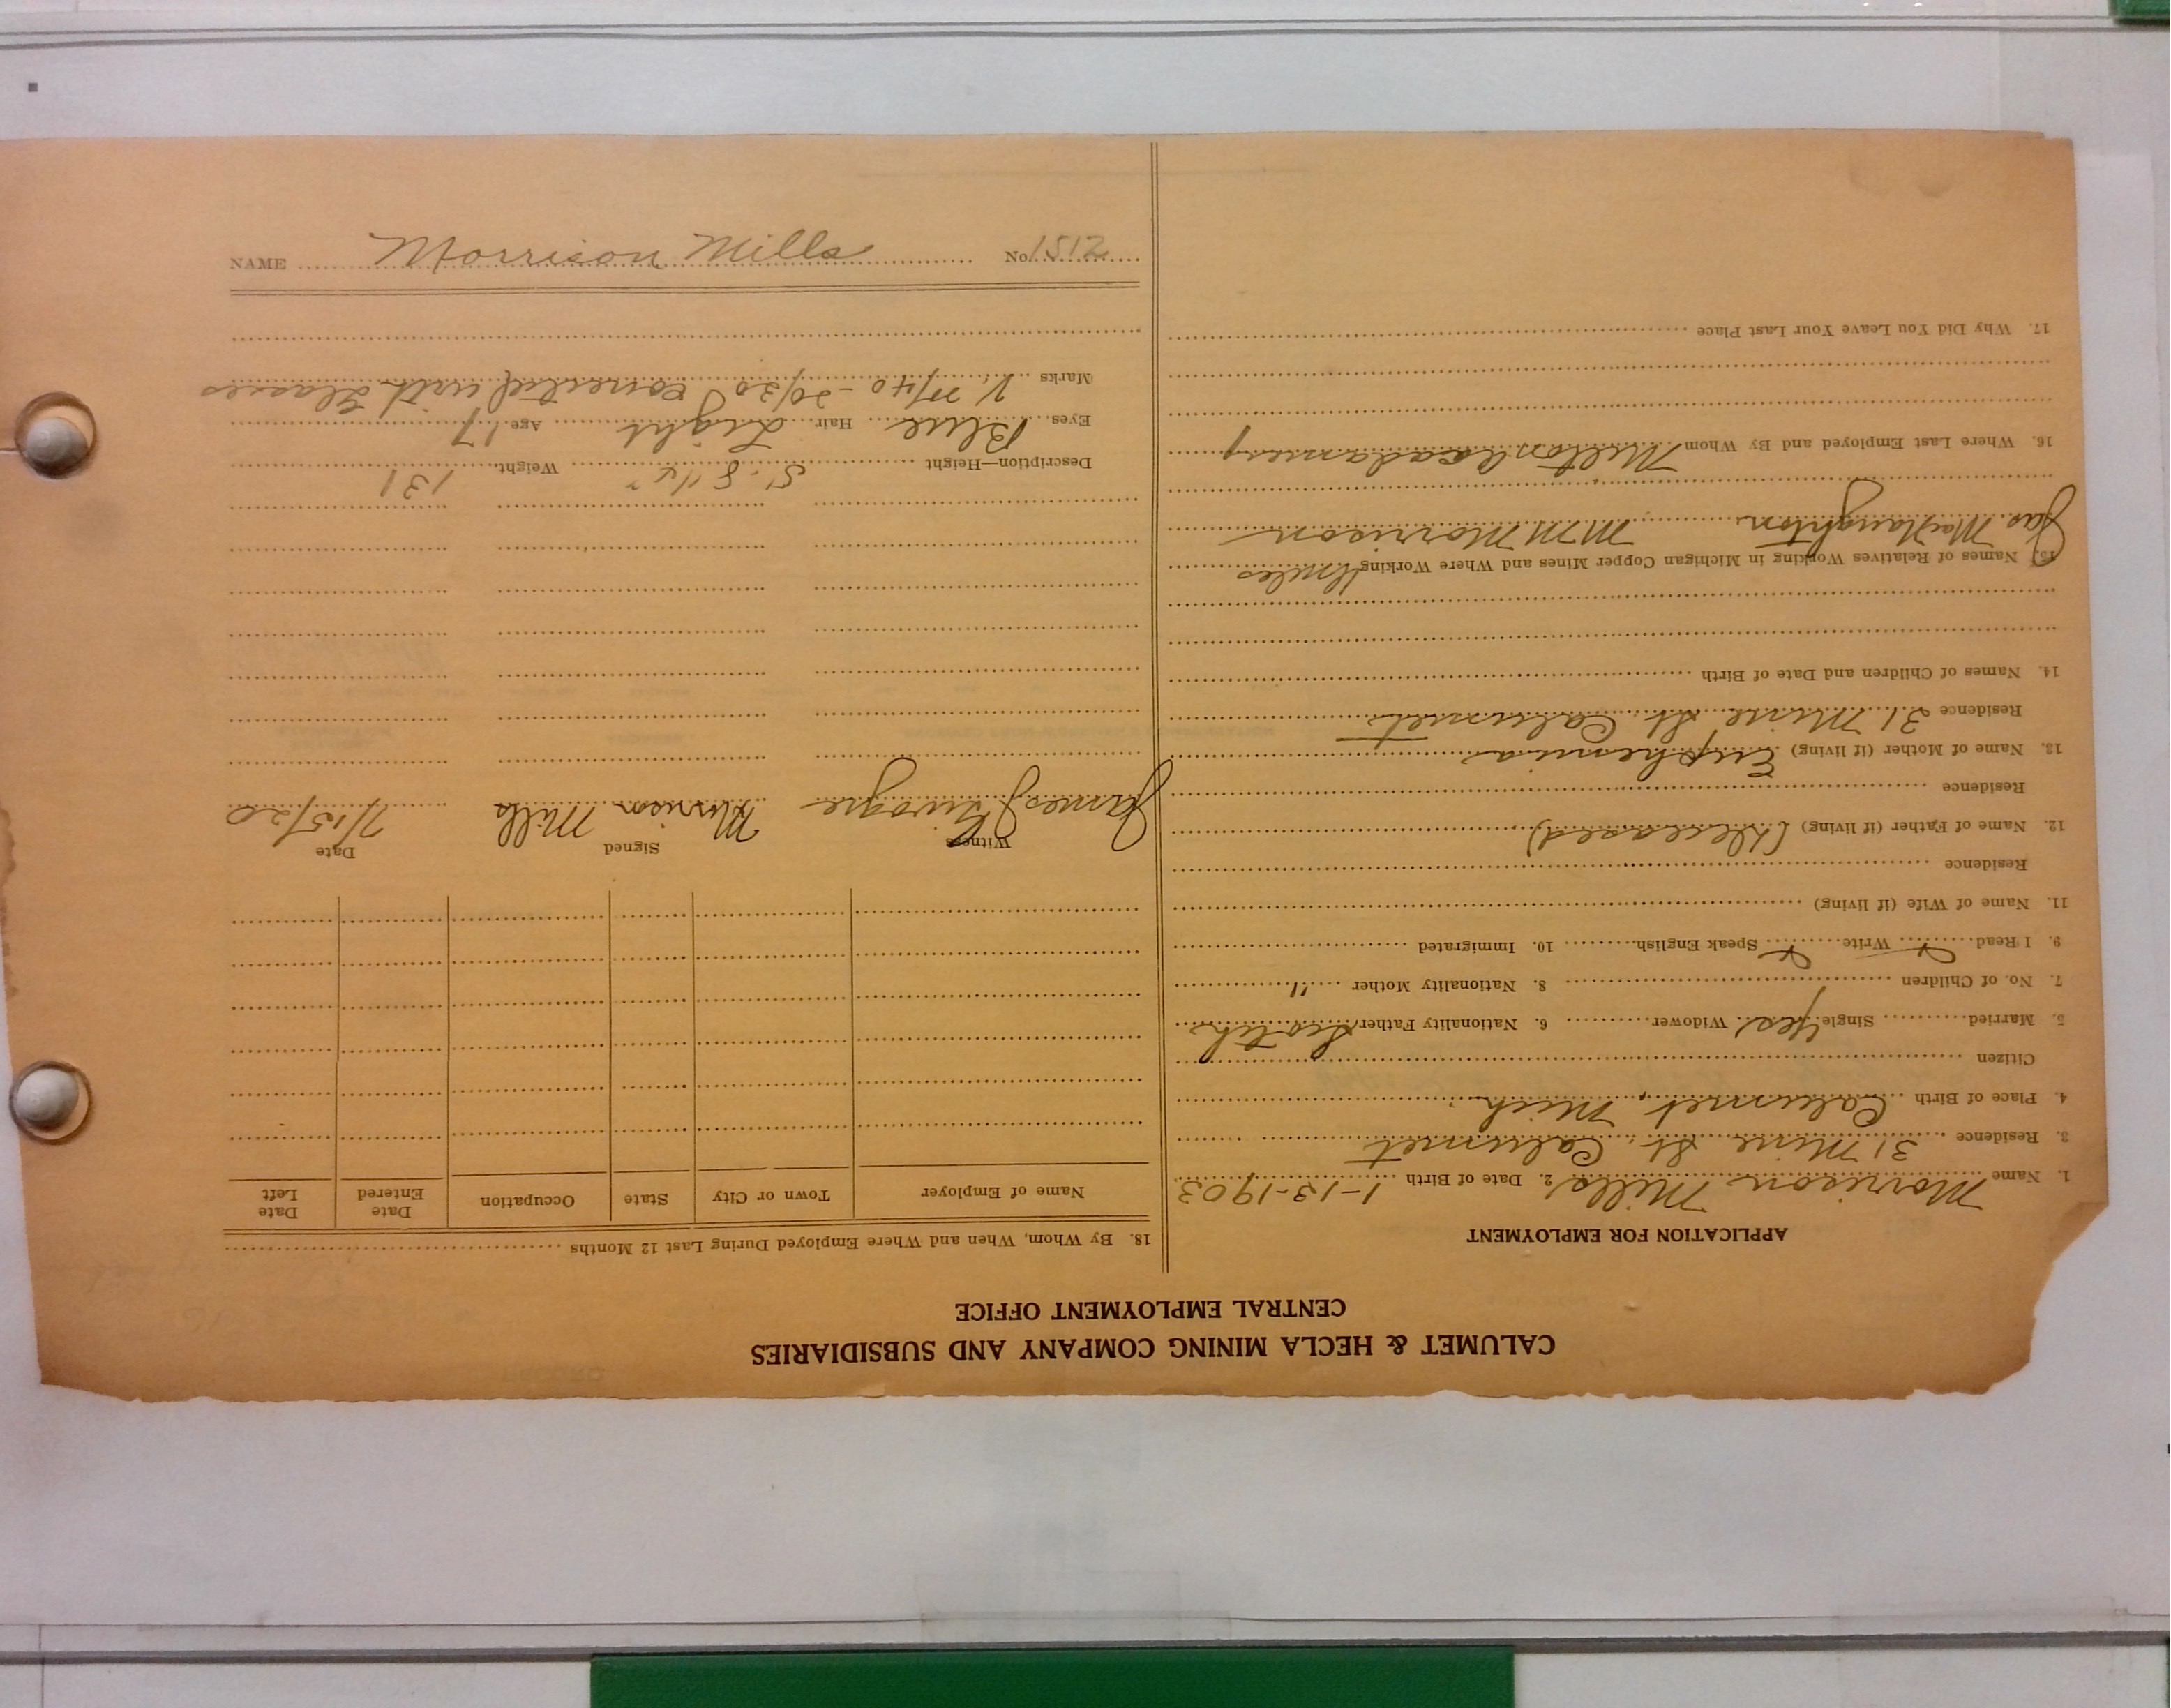 CALUMET & HECLA MINING COMPANY AND SUBSIDIARIES
CENTRAL EMPLOYMENT OFFICE
APPLICATION FOR EMPLOYMENT
1. Name Morrison Mills 2. Date of Birth 1-13-1903
3. Residence 31 Mine St. Calumet
4. Place of Birth Calumet, Mich.
Citizen
5. Married Single Yes Widower 6. Nationality Father Scotch
7. No. of Children 8. Nationality Mother "
9. I Read Write Speak English 10. Immigrated
11. Name of Wife (if living)
Residence
12. Name of Father (if living) (Deceased)
Residence
13. Name of Mother (if living) Euphemia
Residence 31 Mine St. Calumet
14. Names of Children and Date of Birth
15. Names of Relatives Working in Michigan Copper Mines and Where Working Uncles
Jas. MacNaughton M M Morrison
16. Where Last Employed and By Whom Milton Academy
17. Why Did You Leave Your Last Place
18. By Whom, When and Where Employed During Last 12 Months
Name of Employer Town or City State Occupation Date Entered Date Left
Witness Signed Date
James J Morrison Mills 7/15/20
Description—Height 5' 8 1/4" Weight 131
Eyes Blue Hair Light Age 17
Marks V. /40 - 20/20 corrected with Glasses
NAME Morrison Mills No. 1512